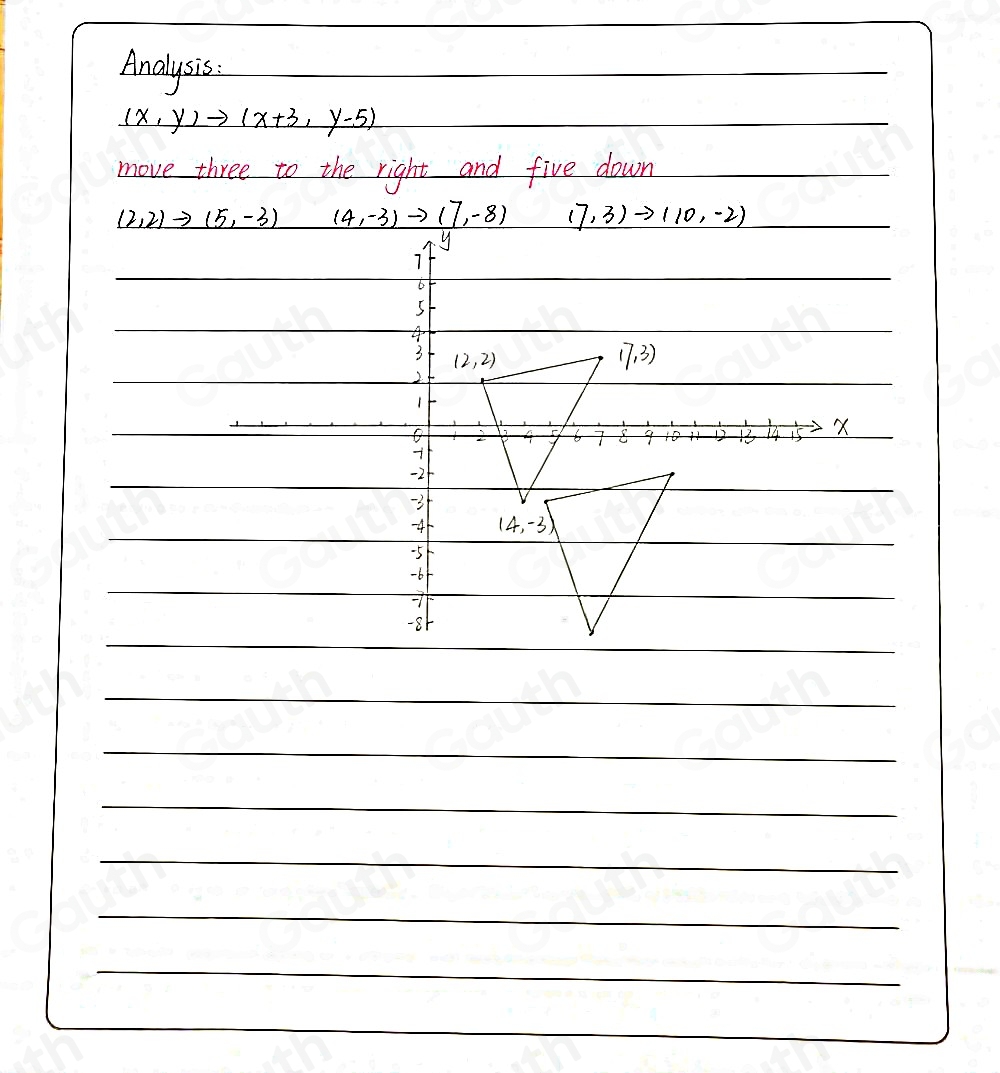 Analysis:
(x, y) → (x+3, y-5)
move three to the right and five down
(2,2) → (5,-3) (4,-3) → (7,-8) (7,3) → (10,-2)
y
7
6
5
4
3
(2,2) (7,3)
2
1
x
0 1 2 3 4 5 6 7 8 9 10 11 12 13 14 15
-1
-2
-3
(4,-3)
-4
-5
-6
-7
-8
Gauth